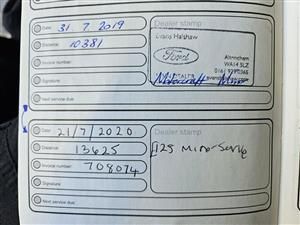 Date: 31.7.2019
Dealer stamp
Distance: 10381
Evans Halshaw
Invoice number:
Ford
Altrincham
WA14 5LZ
Signature
Next service due
Date: 21/7/2020
Dealer stamp
Distance: 13625
£125 Minor Service
Invoice number: 708074
Signature
Next service due